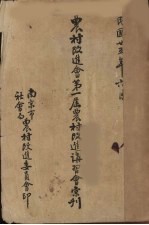 民國廿五年六月
農村改進會第一屆農村改進講習會彙刊
南京市社會局農村改進委員會印